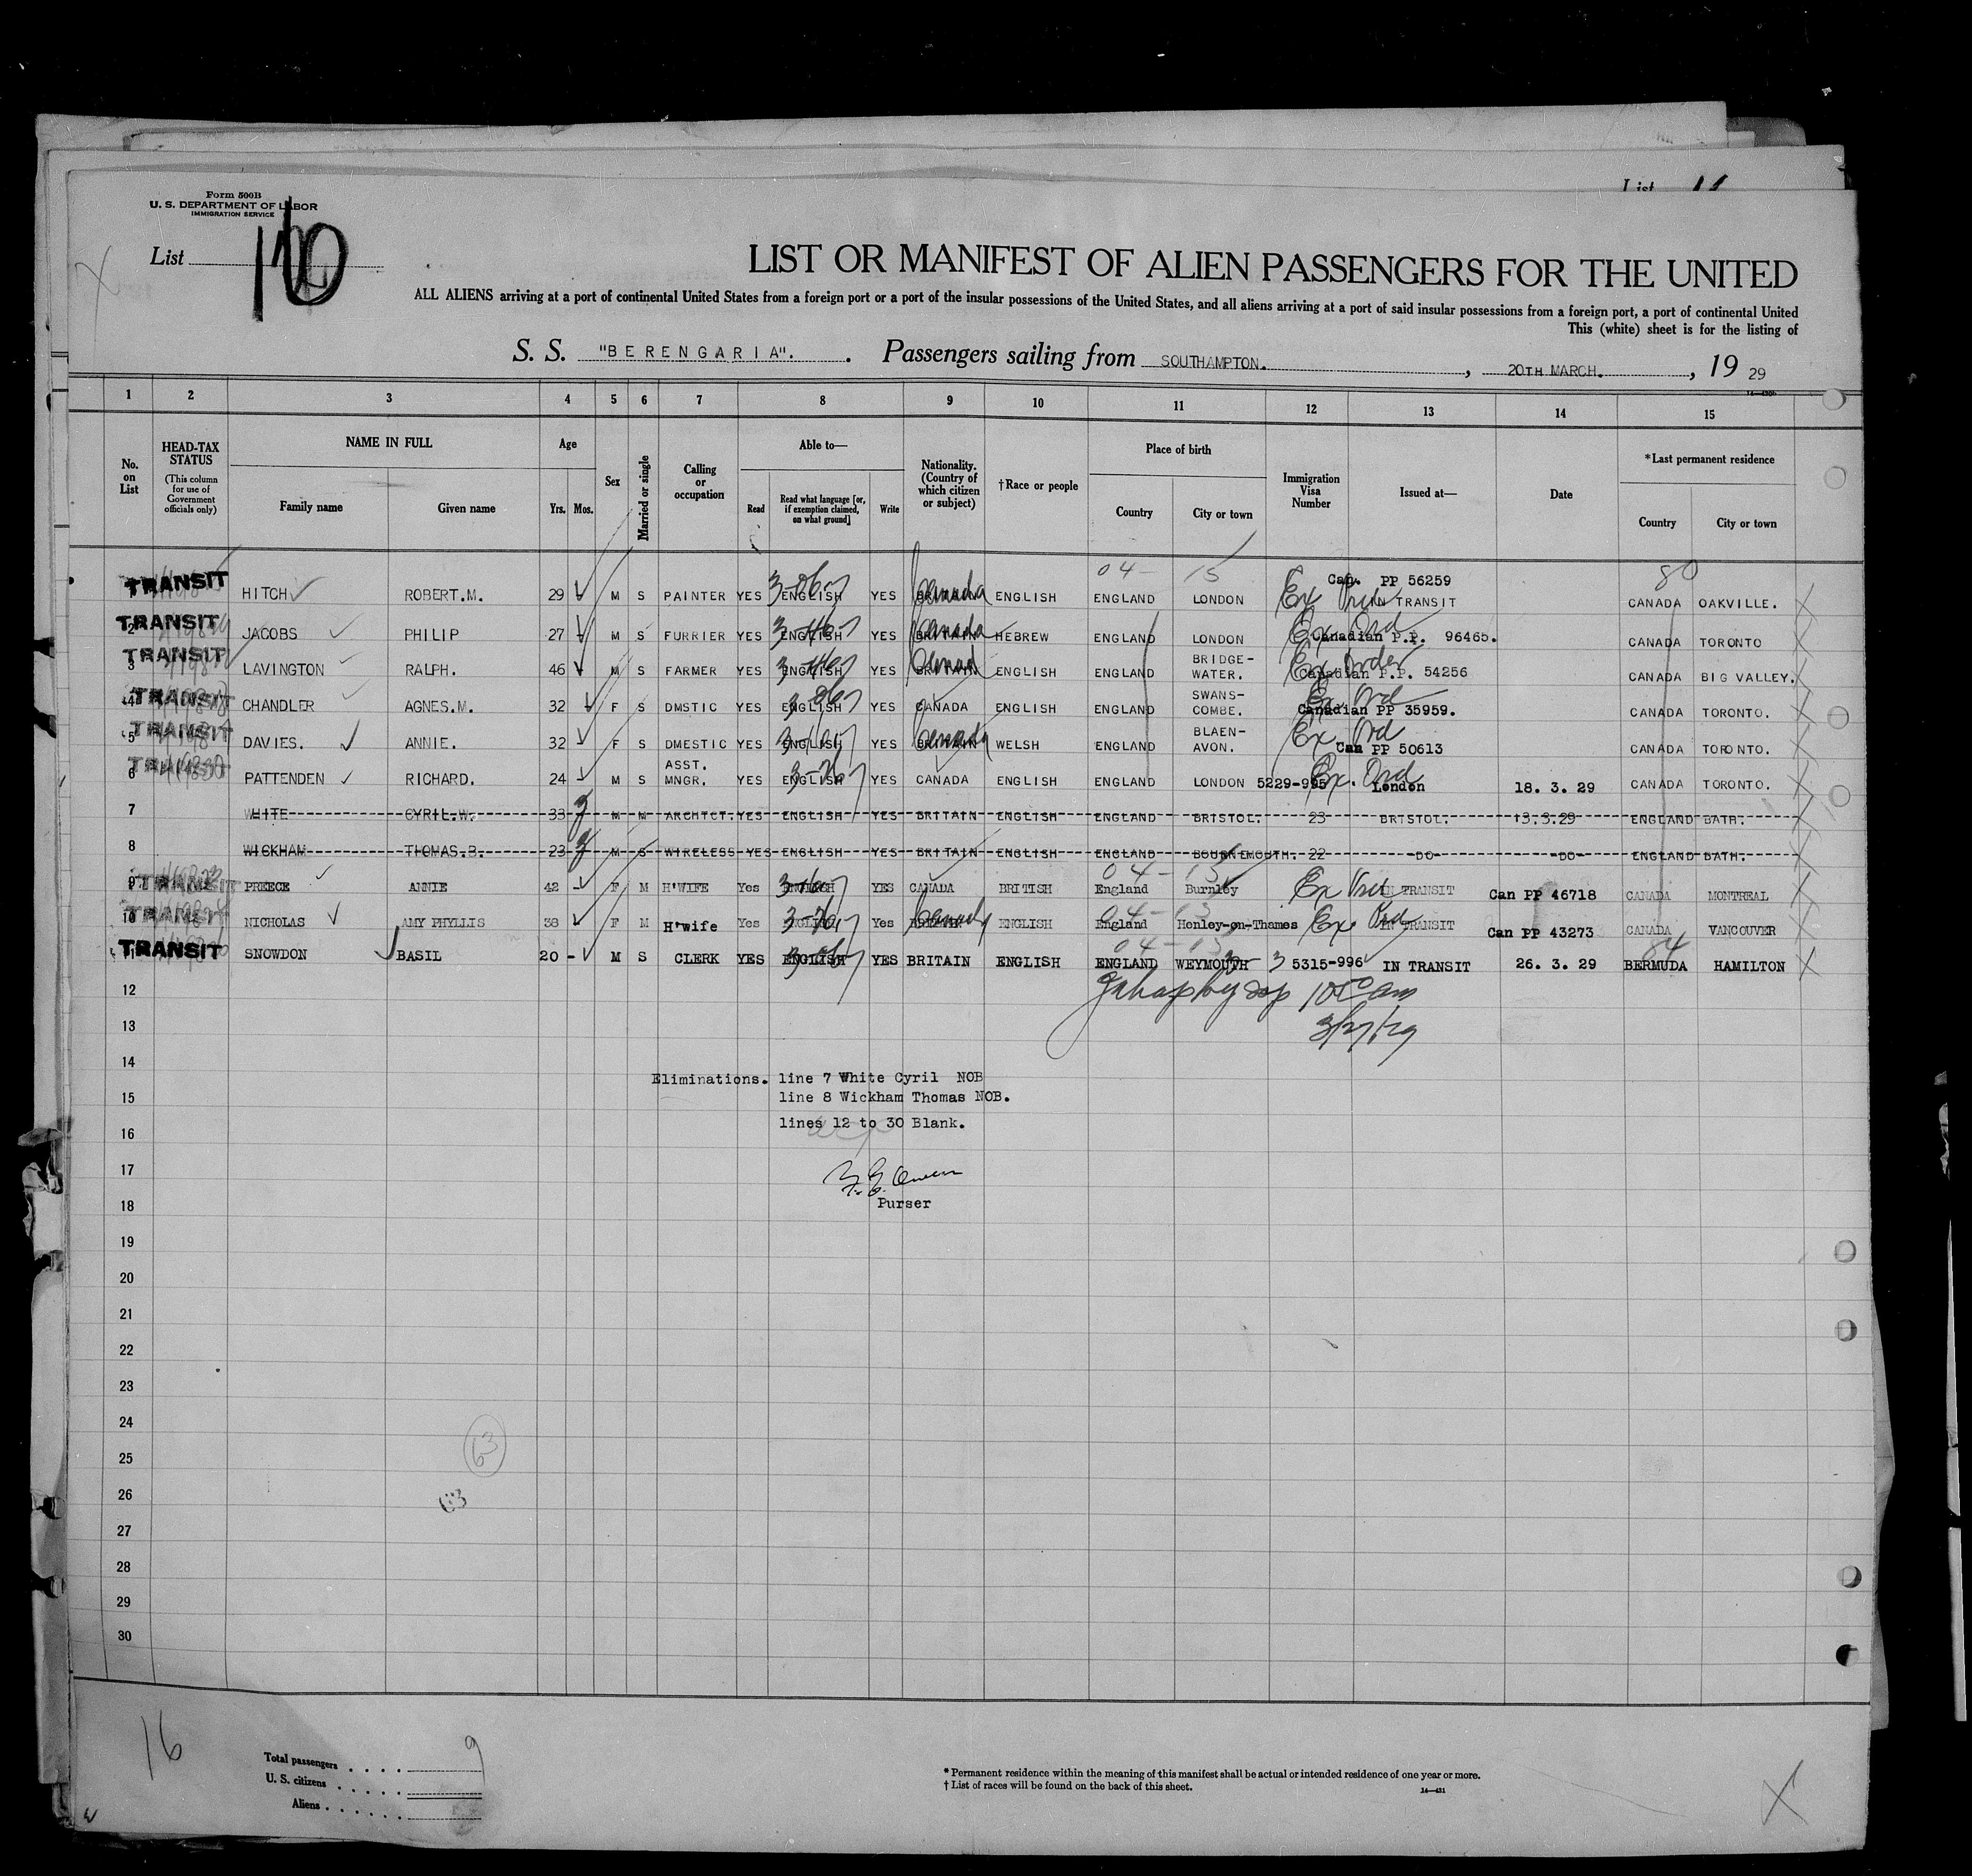 List 11
Form 500B
U. S. DEPARTMENT OF LABOR
IMMIGRATION SERVICE
List
LIST OR MANIFEST OF ALIEN PASSENGERS FOR THE UNITED
ALL ALIENS arriving at a port of continental United States from a foreign port or a port of the insular possessions of the United States, and all aliens arriving at a port of said insular possessions from a foreign port, a port of continental United
This (white) sheet is for the listing of
S. S. "BERENGARIA". . Passengers sailing from SOUTHAMPTON. , 20TH MARCH. , 19 29
1 2 3 4 5 6 7 8 9 10 11 12 13 14 15
No. on List
HEAD-TAX STATUS
(This column for use of Government officials only)
NAME IN FULL
Family name Given name
Age
Yrs. Mos.
Sex
Married or single
Calling or occupation
Able to—
Read Read what language [or, if exemption claimed, on what ground] Write
Nationality. (Country of which citizen or subject)
†Race or people
Place of birth
Country City or town
Immigration Visa Number
Issued at—
Date
*Last permanent residence
Country City or town
04- 15 80
TRANSIT HITCH ROBERT.M. 29 M S PAINTER YES ENGLISH YES BRITAIN Canada ENGLISH ENGLAND LONDON Can. PP 56259 IN TRANSIT CANADA OAKVILLE.
TRANSIT 2 JACOBS PHILIP 27 M S FURRIER YES ENGLISH YES BRITAIN Canada HEBREW ENGLAND LONDON Ex Ord Canadian P.P. 96465. CANADA TORONTO
TRANSIT 3 LAVINGTON RALPH. 46 M S FARMER YES ENGLISH YES BRITAIN ENGLISH ENGLAND BRIDGE-WATER. Ex Order Canadian P.P. 54256 CANADA BIG VALLEY.
TRANSIT 4 CHANDLER AGNES.M. 32 F S DMSTIC YES ENGLISH YES CANADA ENGLISH ENGLAND SWANS-COMBE. Ex Ord Canadian PP 35959. CANADA TORONTO.
TRANSIT 5 DAVIES. ANNIE. 32 F S DMESTIC YES ENGLISH YES BRITAIN Canada WELSH ENGLAND BLAEN-AVON. Ex Ord Can PP 50613 CANADA TORONTO.
TRANSIT 6 PATTENDEN RICHARD. 24 M S ASST. MNGR. YES ENGLISH YES CANADA ENGLISH ENGLAND LONDON 5229-995 Ex. Ord London 18. 3. 29 CANADA TORONTO.
7 WHITE CYRIL.W. 33 M M ARCHTCT. YES ENGLISH YES BRITAIN ENGLISH ENGLAND BRISTOL. 23 BRISTOL. 13.3.29 ENGLAND BATH.
8 WICKHAM THOMAS.B. 23 M S WIRELESS YES ENGLISH YES BRITAIN ENGLISH ENGLAND BOURNEMOUTH. 22 -DO- -DO- ENGLAND BATH.
04-13
TRANSIT 9 PREECE ANNIE 42 - F M H'WIFE Yes ENGLISH YES CANADA BRITISH England Burnley IN TRANSIT Can PP 46718 CANADA MONTREAL
TRANSIT 10 NICHOLAS AMY PHYLLIS 38 F M H'wife Yes ENGLISH Yes Canada ENGLISH England Henley-on-Thames Ex Ord IN TRANSIT Can PP 43273 CANADA VANCOUVER
04-13 84
TRANSIT SNOWDON BASIL 20 - M S CLERK YES ENGLISH YES BRITAIN ENGLISH ENGLAND WEYMOUTH 3 5315-996 IN TRANSIT 26. 3. 29 BERMUDA HAMILTON
12
3/27/29
13
14
Eliminations. line 7 White Cyril NOB
15
line 8 Wickham Thomas NOB.
lines 12 to 30 Blank.
16
17
Purser
18
19
20
21
22
23
24
63
25
26
63
27
28
29
30
16
Total passengers . . . . 9
U. S. citizens . . . . .
Aliens . . . . . .
* Permanent residence within the meaning of this manifest shall be actual or intended residence of one year or more.
† List of races will be found on the back of this sheet.
14—431